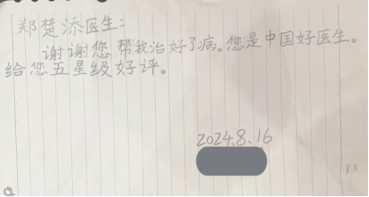 郑楚添医生：
谢谢您帮我治好了病。您是中国好医生。
给您五星级好评。
2024.8.16